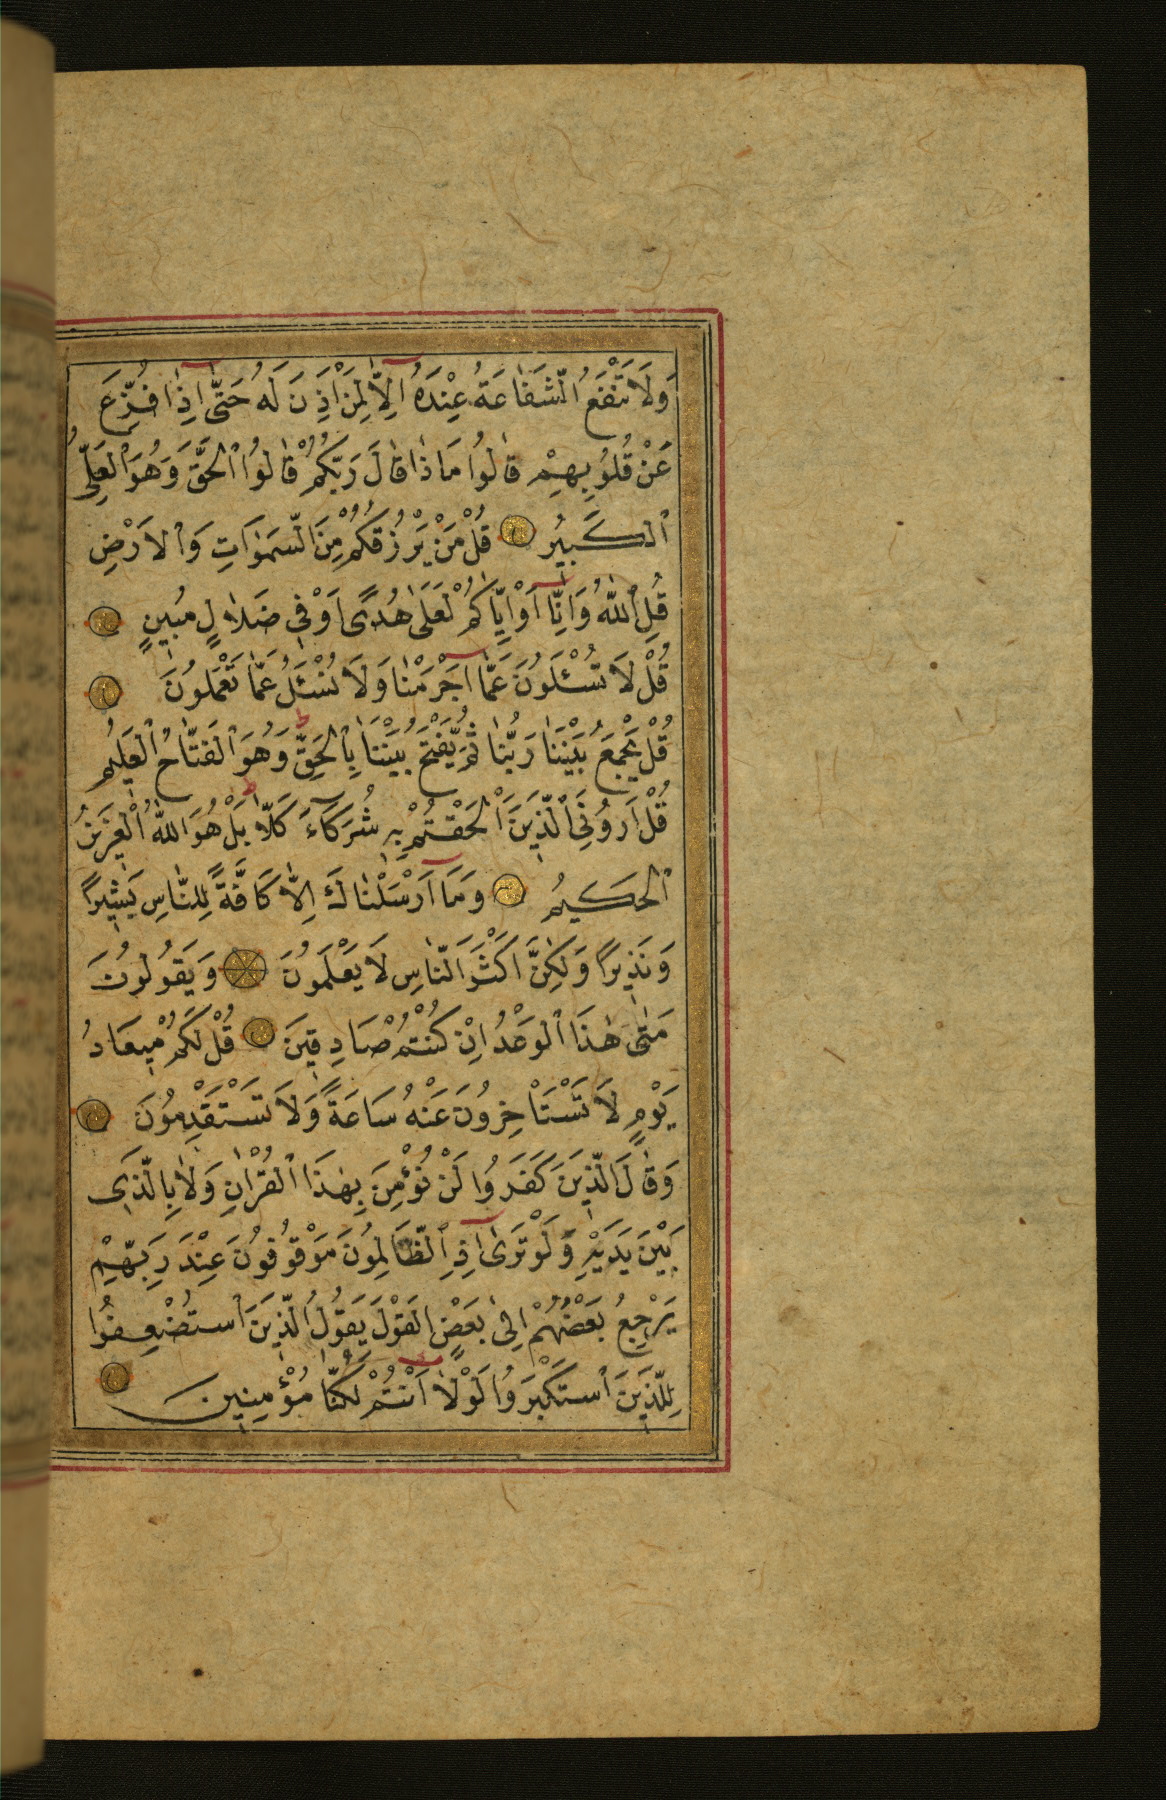 وَلَا تَنْفَعُ الشَّفَاعَةُ عِنْدَهُ اِلَّا لِمَنْ اَذِنَ لَهُ حَتّٰى اِذَا فُزِّعَ
عَنْ قُلُوبِهِمْ قَالُوا مَاذَا قَالَ رَبُّكُمْ قَالُوا الْحَقَّ وَهُوَ الْعَلِىُّ
الْكَبِيرُ قُلْ مَنْ يَرْزُقُكُمْ مِنَ السَّمٰوَاتِ وَالْاَرْضِ
قُلِ اللّٰهُ وَاِنَّا اَوْ اِيَّاكُمْ لَعَلٰى هُدًى اَوْ فِى ضَلَالٍ مُبِينٍ
قُلْ لَا تُسْئَلُونَ عَمَّا اَجْرَمْنَا وَلَا نُسْئَلُ عَمَّا تَعْمَلُونَ
قُلْ يَجْمَعُ بَيْنَنَا رَبُّنَا ثُمَّ يَفْتَحُ بَيْنَنَا بِالْحَقِّ وَهُوَ الْفَتَّاحُ الْعَلِيمُ
قُلْ اَرُونِىَ الَّذِينَ اَلْحَقْتُمْ بِهِ شُرَكَاءَ كَلَّا بَلْ هُوَ اللّٰهُ الْعَزِيزُ
الْحَكِيمُ وَمَا اَرْسَلْنَاكَ اِلَّا كَافَّةً لِلنَّاسِ بَشِيرًا
وَنَذِيرًا وَلٰكِنَّ اَكْثَرَ النَّاسِ لَا يَعْلَمُونَ وَيَقُولُونَ
مَتٰى هٰذَا الْوَعْدُ اِنْ كُنْتُمْ صَادِقِينَ قُلْ لَكُمْ مِيعَادُ
يَوْمٍ لَا تَسْتَاْخِرُونَ عَنْهُ سَاعَةً وَلَا تَسْتَقْدِمُونَ
وَقَالَ الَّذِينَ كَفَرُوا لَنْ نُؤْمِنَ بِهٰذَا الْقُرْاٰنِ وَلَا بِالَّذِى
بَيْنَ يَدَيْهِ وَلَوْ تَرٰى اِذِ الظَّالِمُونَ مَوْقُوفُونَ عِنْدَ رَبِّهِمْ
يَرْجِعُ بَعْضُهُمْ اِلٰى بَعْضٍ الْقَوْلَ يَقُولُ الَّذِينَ اسْتُضْعِفُوا
لِلَّذِينَ اسْتَكْبَرُوا لَوْلَا اَنْتُمْ لَكُنَّا مُؤْمِنِينَ